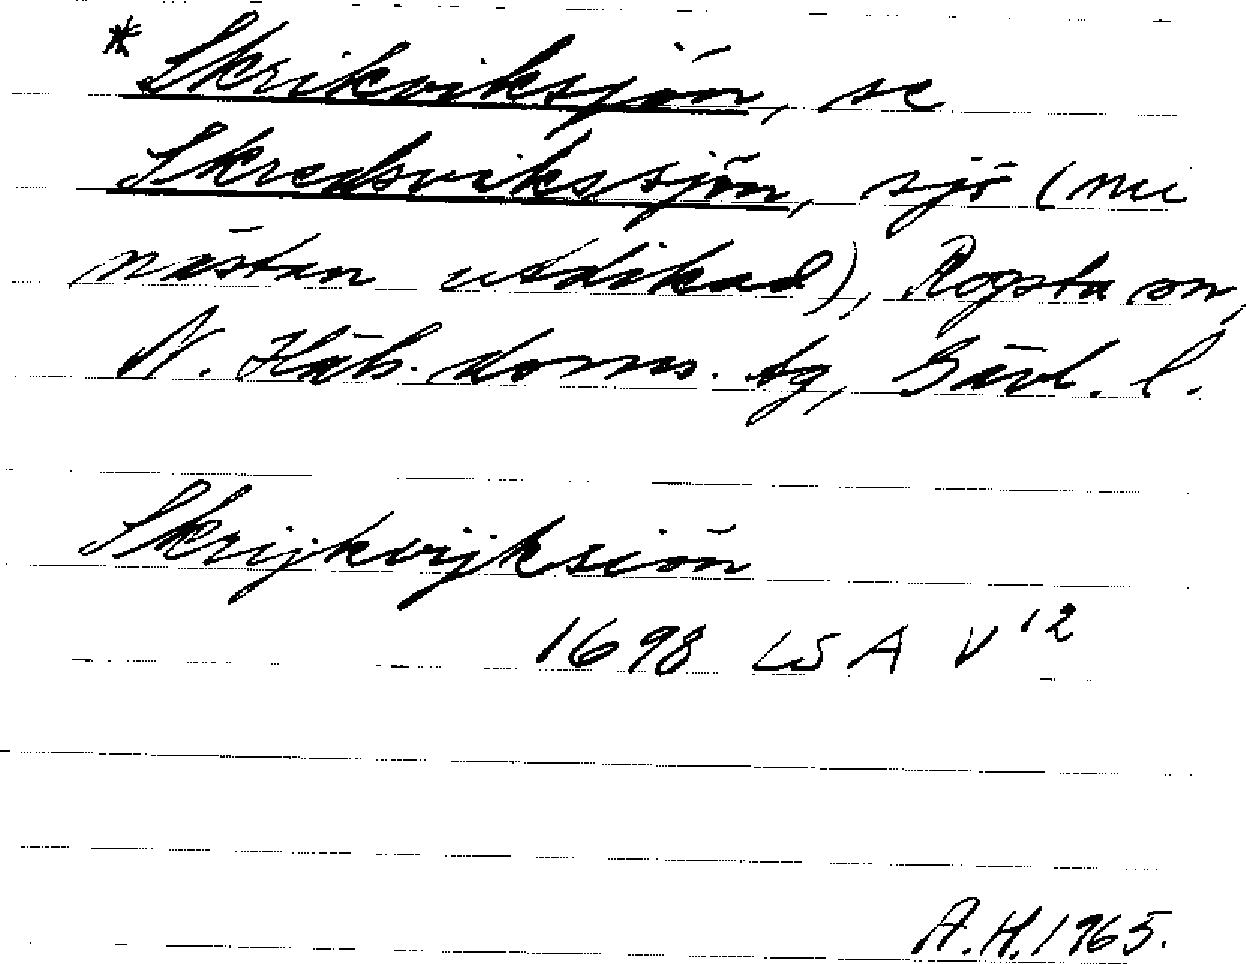 * Skrikviksjön, se
Skredsvikssjön, sjö (nu
nästan utdikad), Rogsta sn,
N. Häls. doms. tg, Gävl. l.
Skrijkvijksiön
1698 LSA V 12
A.H. 1965.